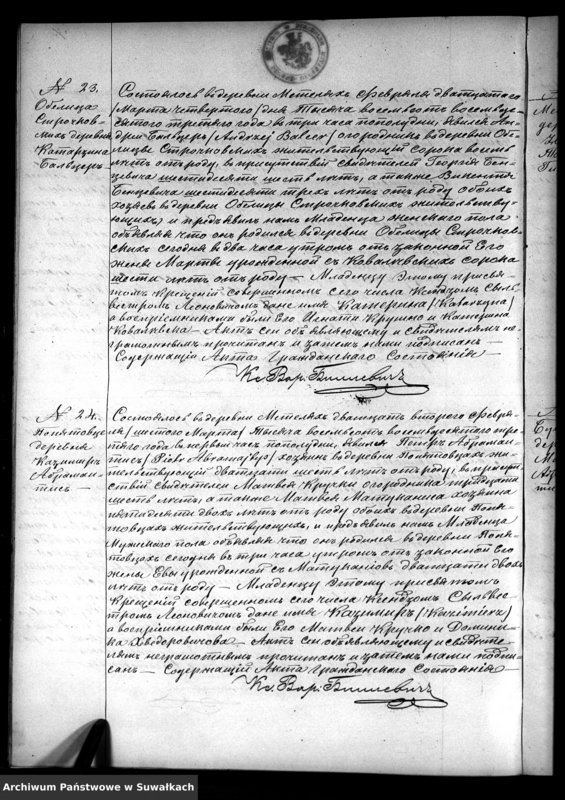 N 23.
Облица
Строчков-
скихъ деревня
Катаржина
Бальцеръ
Состоялось въ деревни Метеляхъ Февраля двадцатаго
/Марта четвертаго/ дня Тысяча восемьсотъ восемьде-
сятого третяго года въ три часа пополудни, явился Ан-
дрей Бальцеръ /Andrzej Balcer/ огородникъ въ деревни Об-
лицы Строчковскихъ жительствующій сорока восемь
лѣтъ отъ роду, въ присутствіи свидѣтелей Георгія Бен-
цевича шестидесяти шесть лѣтъ, а также Викентія
Бенцевича шестидесяти трехъ лѣтъ отъ роду обоихъ
хозяевъ въ деревни Облицы Строчковскихъ жительству-
ющихъ, и предъявилъ намъ Младенца женскаго пола
объявляя что онъ родился въ деревни Облицы Строчков-
скихъ сегодня въ два часа утромъ отъ законной Его
жены Марты урожденной съ Ковалевскихъ сорока
шести лѣтъ отъ роду — Младенцу Этому при свя-
томъ Крещеніи совершенномъ сего числа Ксендзомъ Сыль-
вестромъ Леоновичомъ дано имя Катерина /Katarzyna/
а воспріемниками были Его Игнатій Кручно и Катерина
Акте сей объявляющему и свидѣтелямъ не-
грамотнымъ прочитанъ и затемъ нами подписанъ —
Содержащій Акта Гражданскаго Состоянія —
Кс. Вар.
N 24.
деревня
Казимиръ
Абрамай-
тисъ —
Состоялось въ деревни Метеляхъ двадцать втораго Февра-
ля /шестаго Марта/ Тысяча восемьсотъ восемьдесятого тре-
тяго года въ первый часъ пополудни, явился Петръ Абрамай-
тисъ /Piotr Abramajtys/ хозяинъ въ деревни жи-
тельствующій двадцати шесть лѣтъ отъ роду, въ присут-
ствіи свидѣтелей Матвея Кручки огородника тридцати
шесть лѣтъ, а также Матвея хозяина
пятидесяти двохъ лѣтъ отъ роду обоихъ въ деревни
жительствующихъ, и предъявилъ намъ Младенца
Мужескаго пола объявляя что онъ родился въ деревни
сегодня въ три часа утромъ отъ законной Его
жены Евы урожденной съ двадцати двохъ
лѣтъ отъ роду — Младенцу Этому при святомъ
Крещеніи совершенномъ сего числа Ксендзомъ Сыльвес-
тромъ Леоновичомъ дано имя Казимиръ /Kazimierz/
а воспріемниками были Его Матвей Кручко и Домини-
ка Акте сей объявляющему и свидѣте-
лямъ неграмотнымъ прочитанъ и затемъ нами подпи-
санъ — Содержащій Акта Гражданскаго Состоянія —
Кс. Вар.
Archiwum Państwowe w Suwałkach